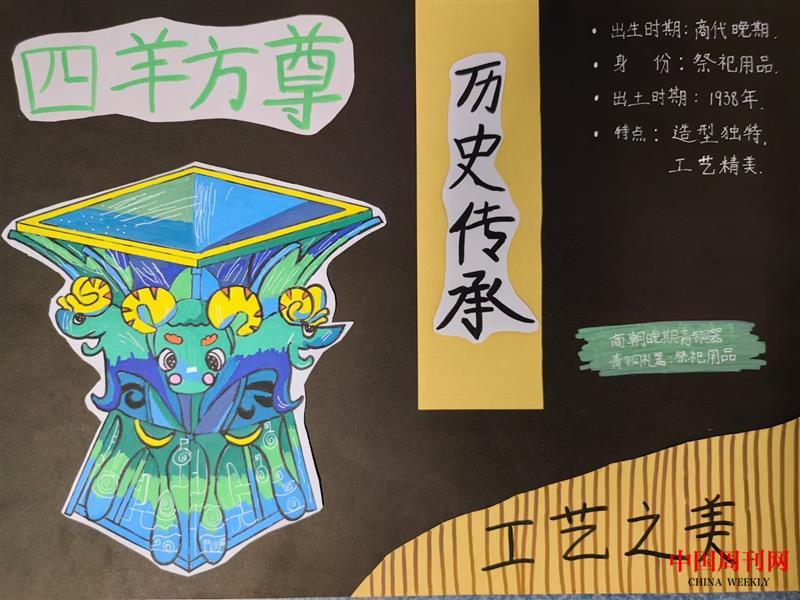 四羊方尊
历史传承
• 出生时期：商代晚期.
• 身 份：祭祀用品.
• 出土时期：1938年.
• 特点：造型独特,
工艺精美.
商朝晚期青铜器
青铜礼器：祭祀用品
工艺之美
中国周刊网
CHINA WEEKLY